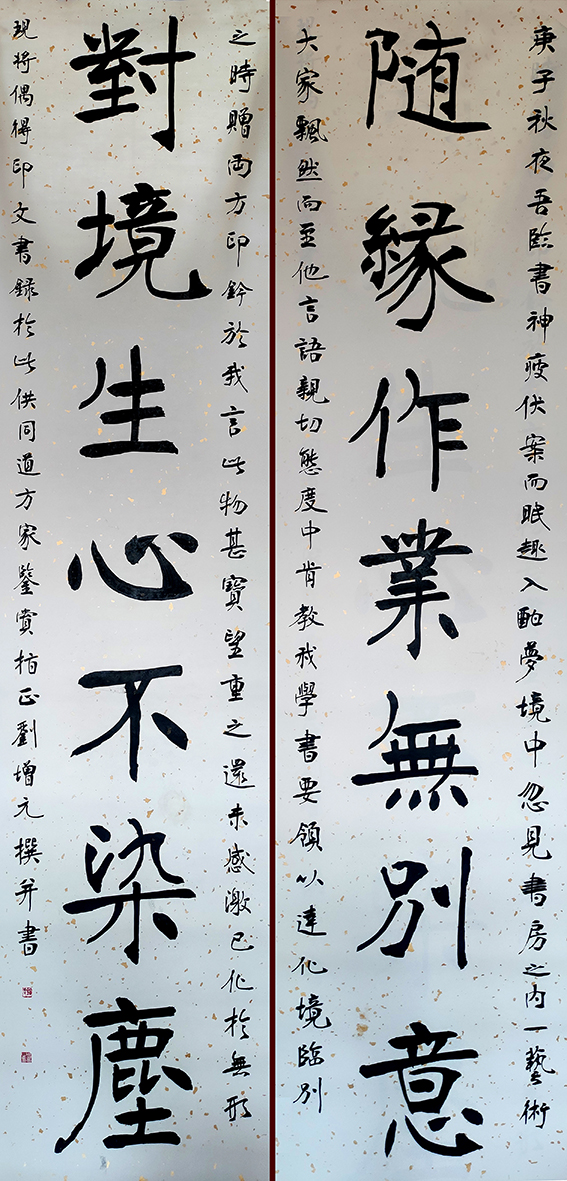 庚子秋夜吾臨書神疲伏案而眠趣入酣夢境中忽見書房之內一藝術
随緣作業無別意
大家飄然而至他言語親切態度中肯教我學書要領以達化境臨別
之時贈両方印鈐於我言此物甚寶望重之還未感激已化於無形
對境生心不染塵
現將偶得印文書錄於此供同道方家鑒賞指正劉增元撰并書